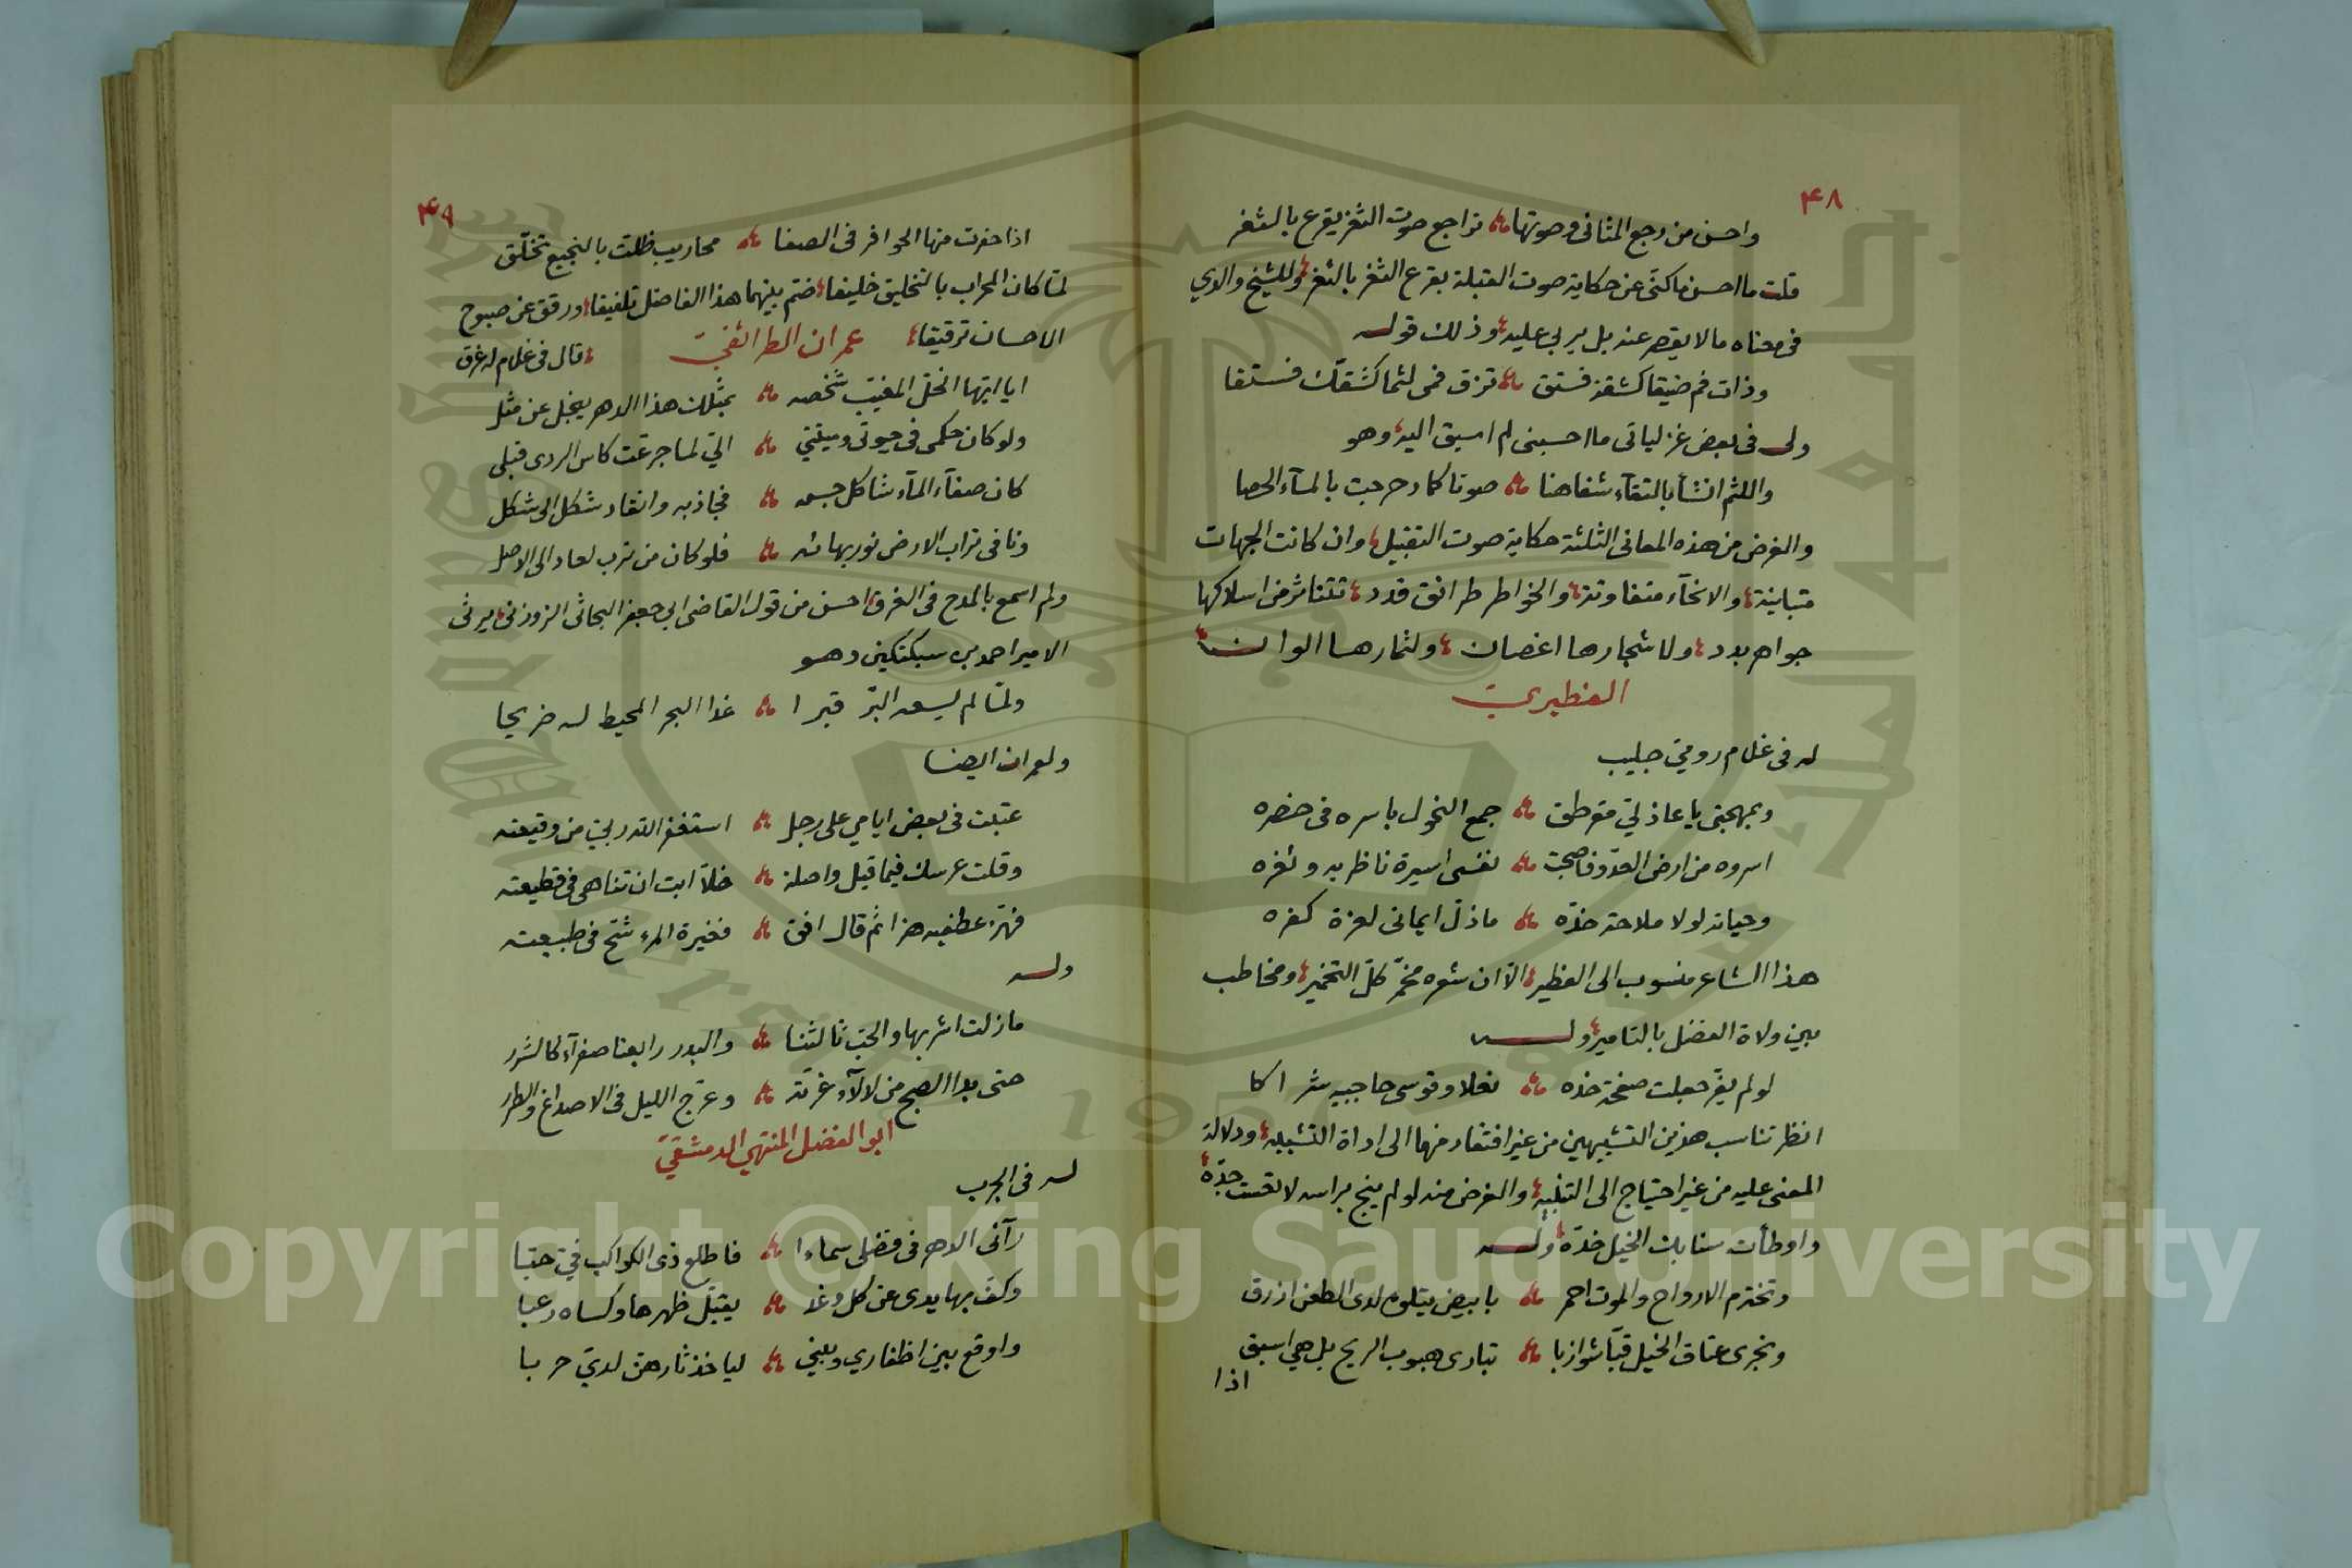 ٤٨
واحسن من رجع المثاني وصوتها تراجع صوت الثغر يقرع بالثغر
قلت ما احسن ما كنّى عن حكاية صوت القبلة بقرع الثغر بالثغر وللشيخ والدي
في معناه ما لا يقصر عنه بل يربي عليه وذلك قوله
وذات فم ضيقا كشقة فستق تزق فمى لثما كشقّك فستقا
ولى فى بعض غزلياتى ما احسبنى لم اسبق اليه وهو
واللثم انشأ بالتقآء شفاهنا صوتا كما دحرجت بالمآء الحصا
والغرض من هذه المعانى الثلثة حكاية صوت التقبيل وان كانت الجهات
متباينة والانحآء متفاوتة والخواطر طرائق قدد تتناثر من اسلاكها
جواهر بدد ولاشجارها اغصان ولثمارها الوان
الفطيري
له فى غلام رومي جليب
وبمهجتى يا عاذلي مقرطق جمع النحول باسره فى خصره
اسروه من ارض العدّو فاصبحت نفسى اسيرة ناظريه وثغره
وحياته لولا ملاحة خدّه ماذلّ ايمانى لعزة كفره
هذا الشاعر منسوب الى الفطير الاّ ان شعره مخمّر كلّ التخمير ومخاطب
بين ولاة الفضل بالتامير ولــه
لو لم يفّر جعلت صفحة خده نعلا وقوسى حاجبيه شراكا
انظر تناسب هذين التشبيهين من غير افتقار منهما الى اداة التشبيه ودلالة
المعنى عليه من غير احتياج الى التنبيه والغرض منه لو لم ينج براسه لاتعست جدّه
واوطأت سنابك الخيل خدّه ولــه
وتخترم الارواح والموت احمر بابيض يتلوه لدى الطعن ازرق
وتجرى عتاق الخيل قبّا شوازبا تبارى هبوب الريح بل هي اسبق
اذا
٤٩
اذا حفرت منها الحوافر فى الصفا محاريب ظلت بالنجيع تخلّق
لمّا كان المحراب بالتخليق خليقا ضم بينهما هذا الفاضل تلفيقا ورقق عن صبوح
الاحسان ترقيقا عمران الطرائفيّ قال فى غلام له غرق
ايا ايّها الخلّ المغيّب شخصه بمثلك هذا الدهر يبخل عن مثل
ولو كان حكمى فى حيوتى وميتتي اليّ لما جرعت كاس الردى قبلى
كان صفآء المآء شاكل جسمه فجاذبه وانقاد شكل الى شكل
ونافى تراب الارض نور بهائه فلو كان من ترب لعاد الى الاصل
ولم اسمع بالمدح فى الغرق احسن من قول القاضى ابى جعفر البحاثى الزوزنى يرثى
الامير احمد بن سبكتكين وهــو
ولمّا لم يسعه البرّ قبرا غدا البحر المحيط له ضريحا
ولعمران ايضــا
عتبت فى بعض ايامي على رجل استغفر الله ربي من وقيعته
وقلت عرسك فيما قيل واصلة خلاّ ابت ان تناهى فى قطيعته
فهّز عطفيه هزا ثم قال افق فغيرة المرء شحّ فى طبيعته
ولــه
مازلت اشربها والحبّ ثالثنا والبدر رابعنا صفرآء كالشرر
حتى بدا الصبح من لالآء غرّته وعرّج الليل فى الاصداغ والطرر
ابو الفضل المنتهي الدمشقيّ
لــه فى الجرب
رآنى الدهر فى فضلى سماءا فاطلع ذى الكواكب فيّ حبّا
وكفّ بها يدى عن كل وغد يقبّل ظهرها وكساه رعبا
واوقع بين اظفاري وبينى لياخذ ثارهن لديّ حربا
Copyright © King Saud University
1957